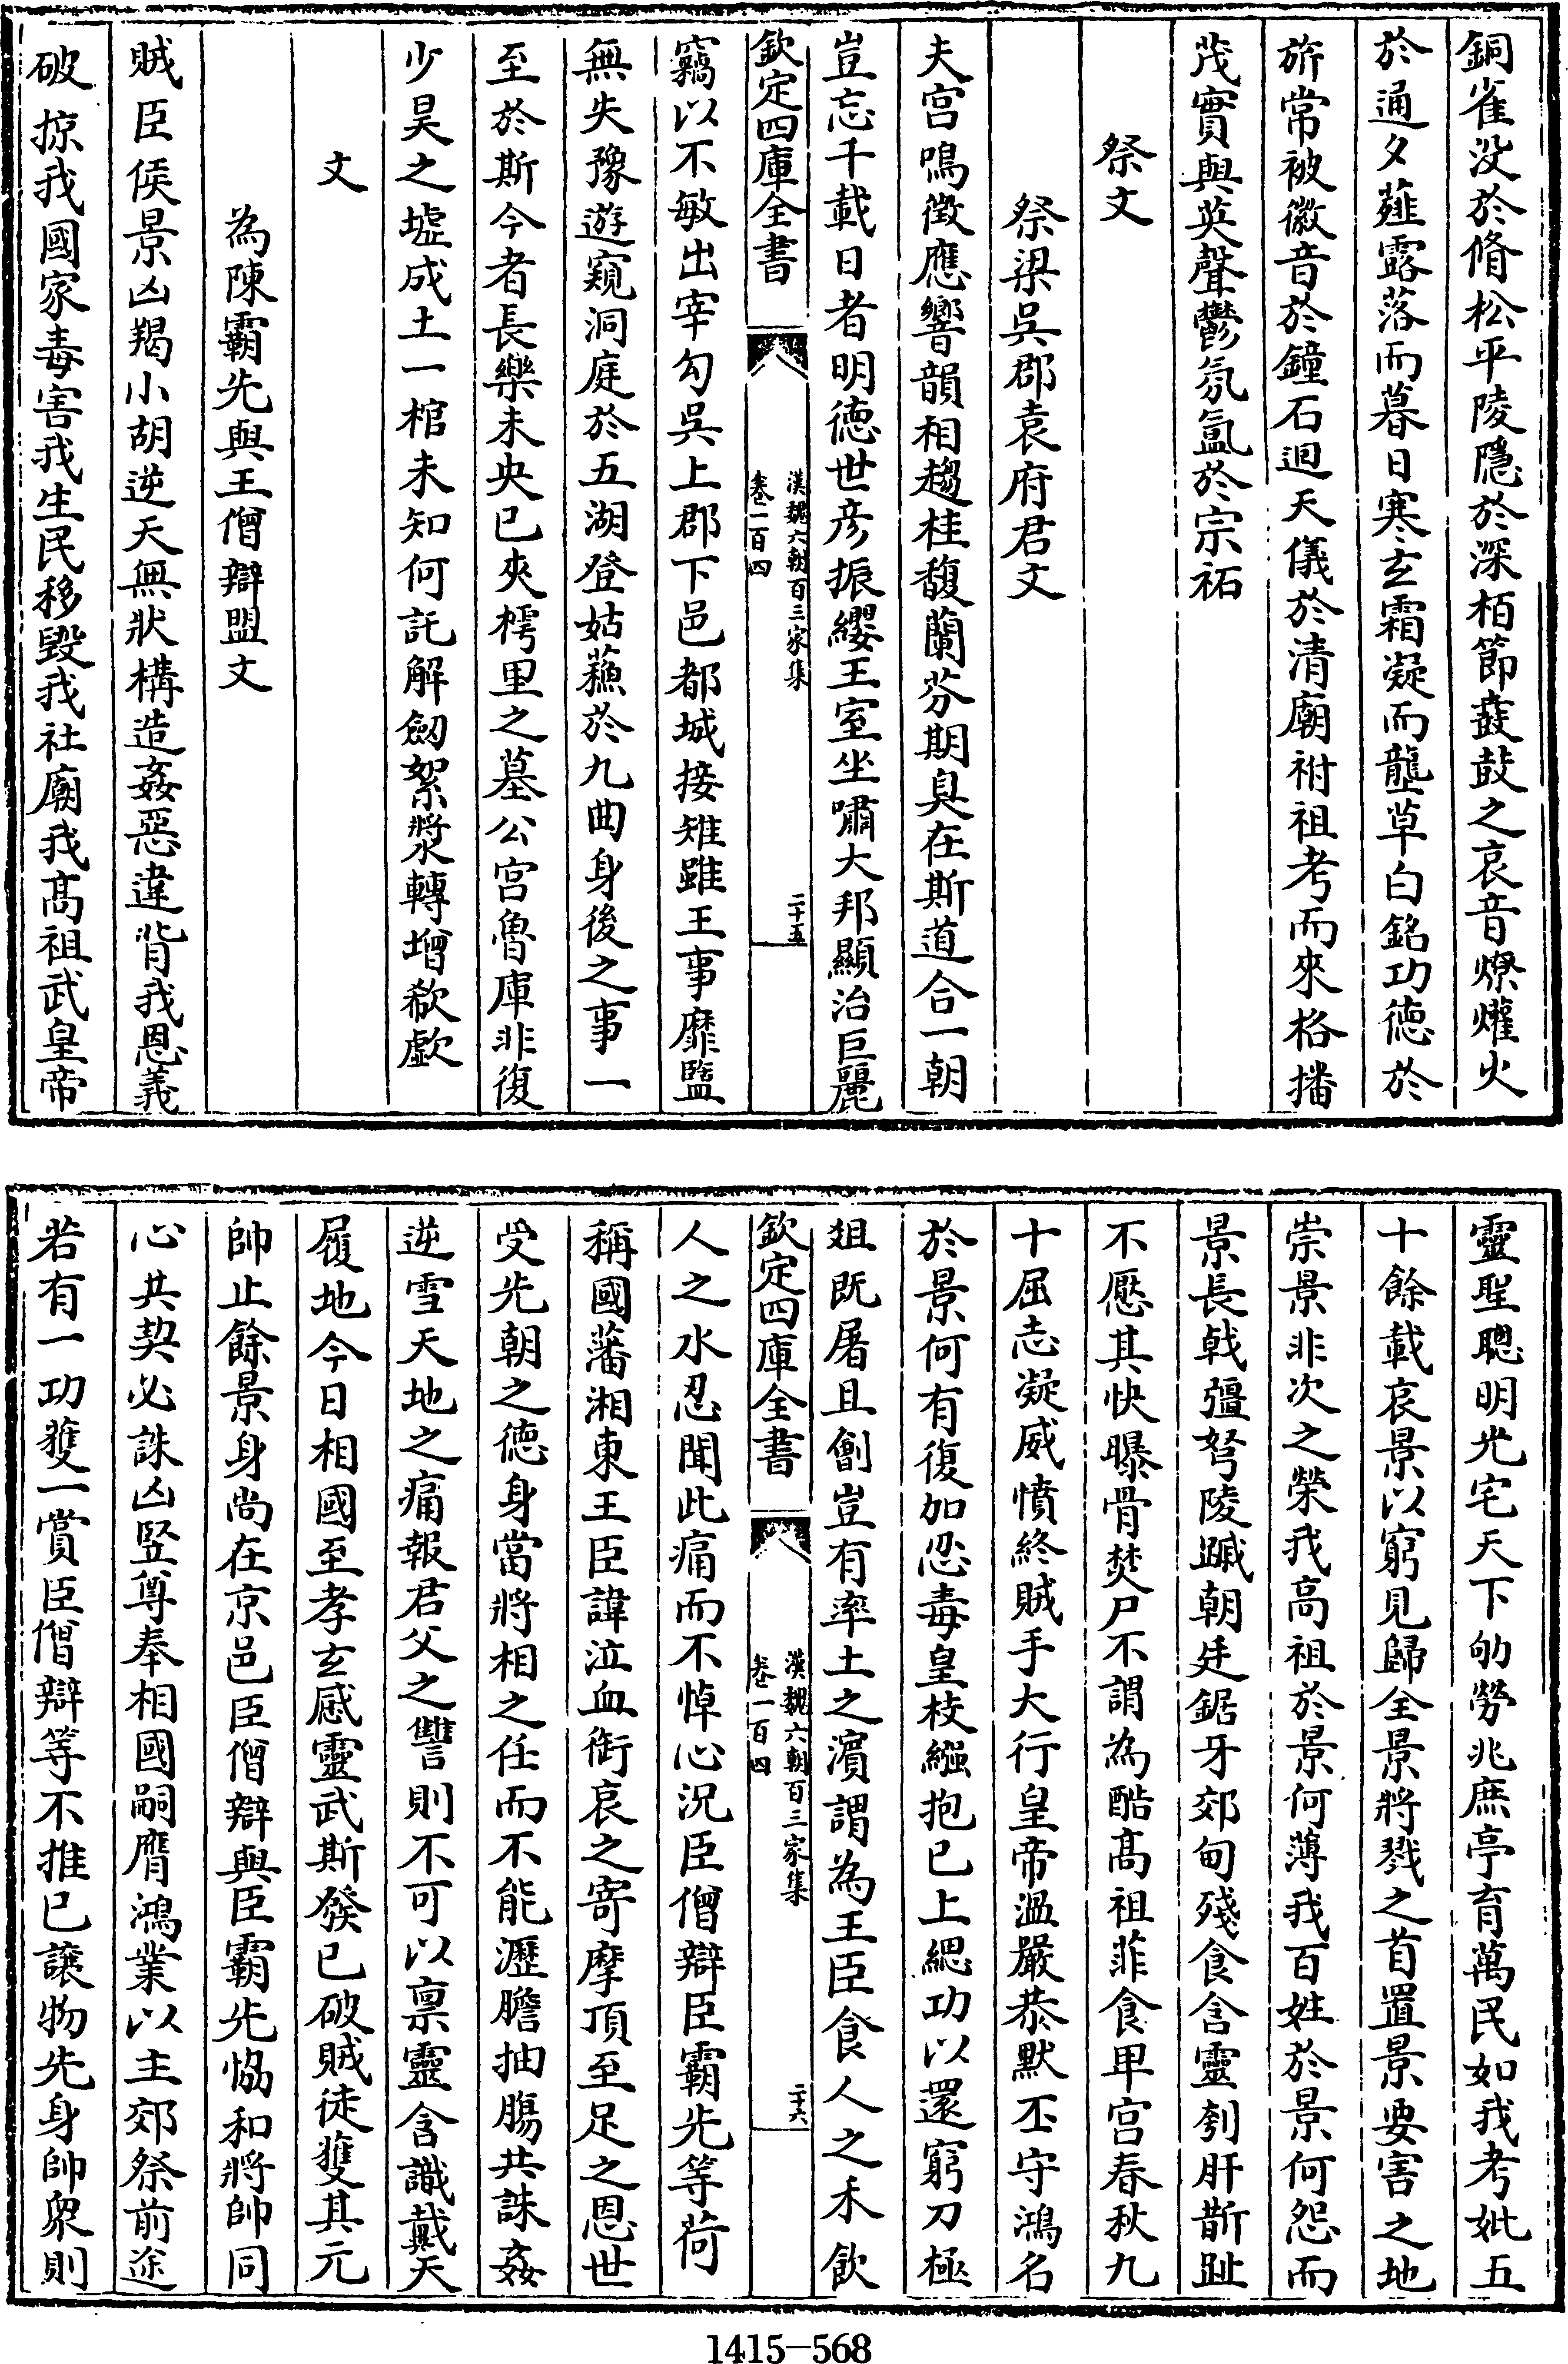 銅雀没於脩松平陵隱於深栢節鼗鼓之哀音燎爟火
於通夕薤露落而暮日寒玄霜凝而壟草白銘功徳於
旂常被徽音於鐘石迴天儀於清廟祔祖考而來格播
茂實與英聲鬱氛氲於宗祏
祭文
祭梁吳郡袁府君文
夫宫鳴徵應響韻相趨桂馥蘭芬期臭在斯道合一朝
豈忘千載日者明徳世彦振纓王室坐嘯大邦顯治巨麗
欽定四庫全書
漢魏六朝百三家集
卷一百四
二十五
竊以不敏出宰勾吳上郡下邑都城接雉雖王事靡盬
無失豫遊窺洞庭於五湖登姑蘓於九曲身後之事一
至於斯今者長樂未央已夾樗里之墓公宫魯庫非復
少昊之墟成土一棺未知何託解劒絮漿轉增欷歔
文
為陳霸先與王僧辯盟文
賊臣侯景凶羯小胡逆天無狀構造姦惡違背我恩義
破掠我國家毒害我生民移毀我社廟我髙祖武皇帝
靈聖聰明光宅天下劬勞兆庶亭育萬民如我考妣五
十餘載哀景以窮見歸全景將戮之首置景要害之地
崇景非次之榮我高祖於景何薄我百姓於景何怨而
景長戟彊弩陵蹴朝廷鋸牙郊甸殘食含靈刳肝斮趾
不厭其快曝骨焚尸不謂為酷髙祖菲食卑宫春秋九
十屈志凝威憤終賊手大行皇帝温嚴恭默丕守鴻名
於景何有復加忍毒皇枝繈抱已上緦功以還窮刀極
俎既屠且劊豈有率土之濵謂為王臣食人之禾飲
欽定四庫全書
漢魏六朝百三家集
卷一百四
二十六
人之水忍聞此痛而不悼心況臣僧辯臣霸先等荷
稱國藩湘東王臣諱泣血銜哀之寄摩頂至足之恩世
受先朝之徳身當將相之任而不能瀝膽抽腸共誅姦
逆雪天地之痛報君父之讐則不可以禀靈含識戴天
履地今日相國至孝玄感靈武斯發已破賊徒獲其元
帥止餘景身尚在京邑臣僧辯與臣霸先恊和將帥同
心共契必誅凶竪尊奉相國嗣膺鴻業以主郊祭前途
若有一功獲一賞臣僧辯等不推已讓物先身帥衆則
1415-568